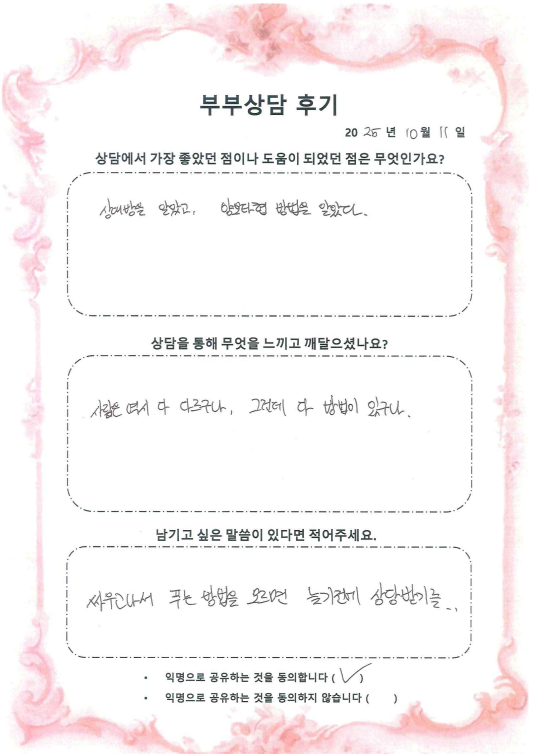 부부상담 후기
2025 년 10월 11 일
상담에서 가장 좋았던 점이나 도움이 되었던 점은 무엇인가요?
상대방을 알았고, 방법을 알았다.
상담을 통해 무엇을 느끼고 깨달으셨나요?
사람은 역시 다 다르구나, 그런데 다 방법이 있구나.
남기고 싶은 말씀이 있다면 적어주세요.
싸우고나서 푸는 방법을 모르면 늦기전에 상담받기를..
• 익명으로 공유하는 것을 동의합니다 (✓)
• 익명으로 공유하는 것을 동의하지 않습니다 ( )